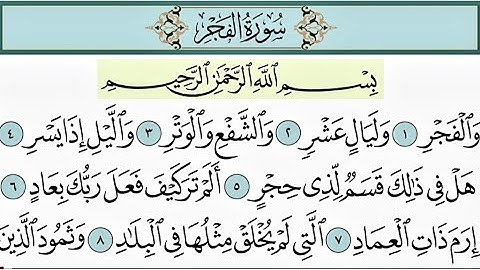 سُورَةُ الفَجْرِ
بِسْمِ اللَّهِ الرَّحْمَٰنِ الرَّحِيمِ
وَٱلْفَجْرِ ١ وَلَيَالٍ عَشْرٖ ٢ وَٱلشَّفْعِ وَٱلْوَتْرِ ٣ وَٱلَّيْلِ إِذَا يَسْرِ ٤
هَلْ فِي ذَٰلِكَ قَسَمٞ لِّذِي حِجْرٍ ٥ أَلَمْ تَرَ كَيْفَ فَعَلَ رَبُّكَ بِعَادٍ ٦
إِرَمَ ذَاتِ ٱلْعِمَادِ ٧ ٱلَّتِي لَمْ يُخْلَقْ مِثْلُهَا فِي ٱلْبِلَٰدِ ٨ وَثَمُودَ ٱلَّذِينَ